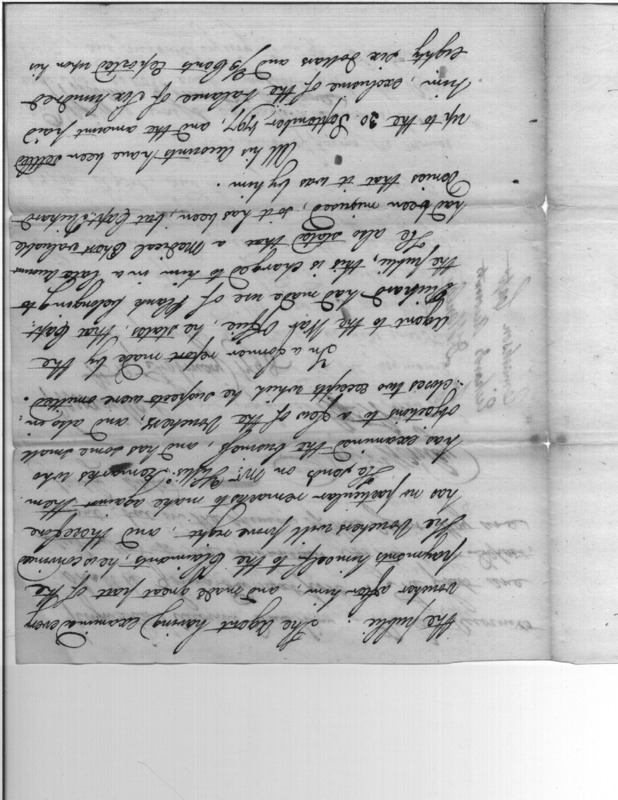 the public. The Agent having examined every
voucher after him, and made great part of the
payments himself to the Claimants, he is convinced
the Vouchers will prove right, and therefore
has no particular remarks to make against them.
He sends on Mr. Remarks who
has examined the business, and has some small
objections to a few of the Vouchers, and also in-
closes two receipts which he suspects were omitted.
In a former report made by the
Agent to the War Office, he states that Capt:
Richard had made use of Plank belonging to
the public, this is charged to him in a late account
He also stated that a Medical Chest valuable
had been misused, so it has been, but Capt. Richard
Denies that it was by him.
All his accounts have been settled
up to the 30 September, 1797, and the amount paid
him, exclusive of the balance of Six hundred
Eighty six Dollars and Cents deposited when his